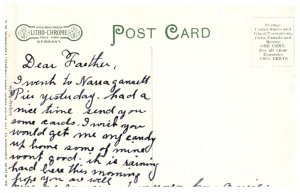 LITHO-CHROME
GERMANY
POST CARD
Postage
United States and
Island Possessions
Cuba, Canada and
Mexico
ONE CENT
For all other
Countries
TWO CENTS
Dear Farther,
I went to Narragansett
Pier yesterday. had a
nice time send you
some cards. I wish you
would get me my candy
up home some of mine
wont good. it is raining
hard here this morning
hope you are well